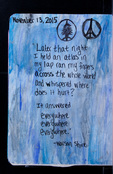 November 13, 2015
Later that night
I held an atlas in
my lap ran my fingers
across the whole world
and whispered where
does it hurt?
It answered
Everywhere
Everywhere
Everywhere.
-Warsan Shire